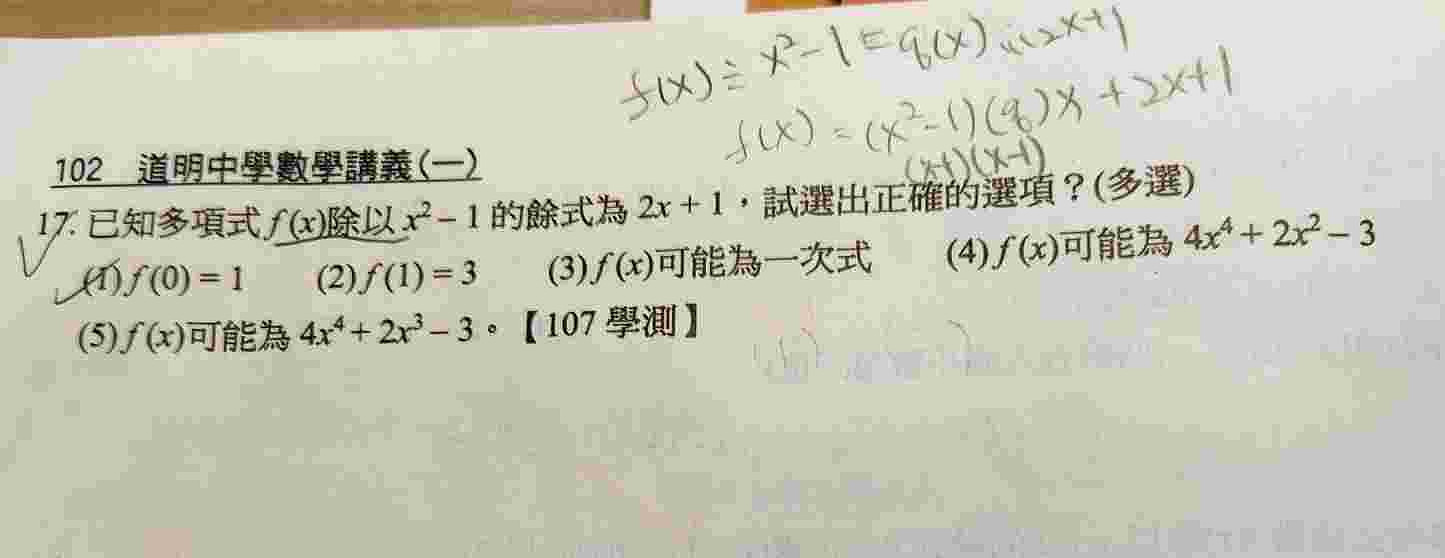 f(x) ÷ x²-1 = q(x) … 2x+1
f(x) = (x²-1)(q)x + 2x+1
(x+1)(x-1)
102 道明中學數學講義(一)
17. 已知多項式 f(x)除以 x² – 1 的餘式為 2x + 1，試選出正確的選項？(多選)
(1) f(0) = 1 (2) f(1) = 3 (3) f(x)可能為一次式 (4) f(x)可能為 4x⁴ + 2x² – 3
(5) f(x)可能為 4x⁴ + 2x³ – 3。【107 學測】